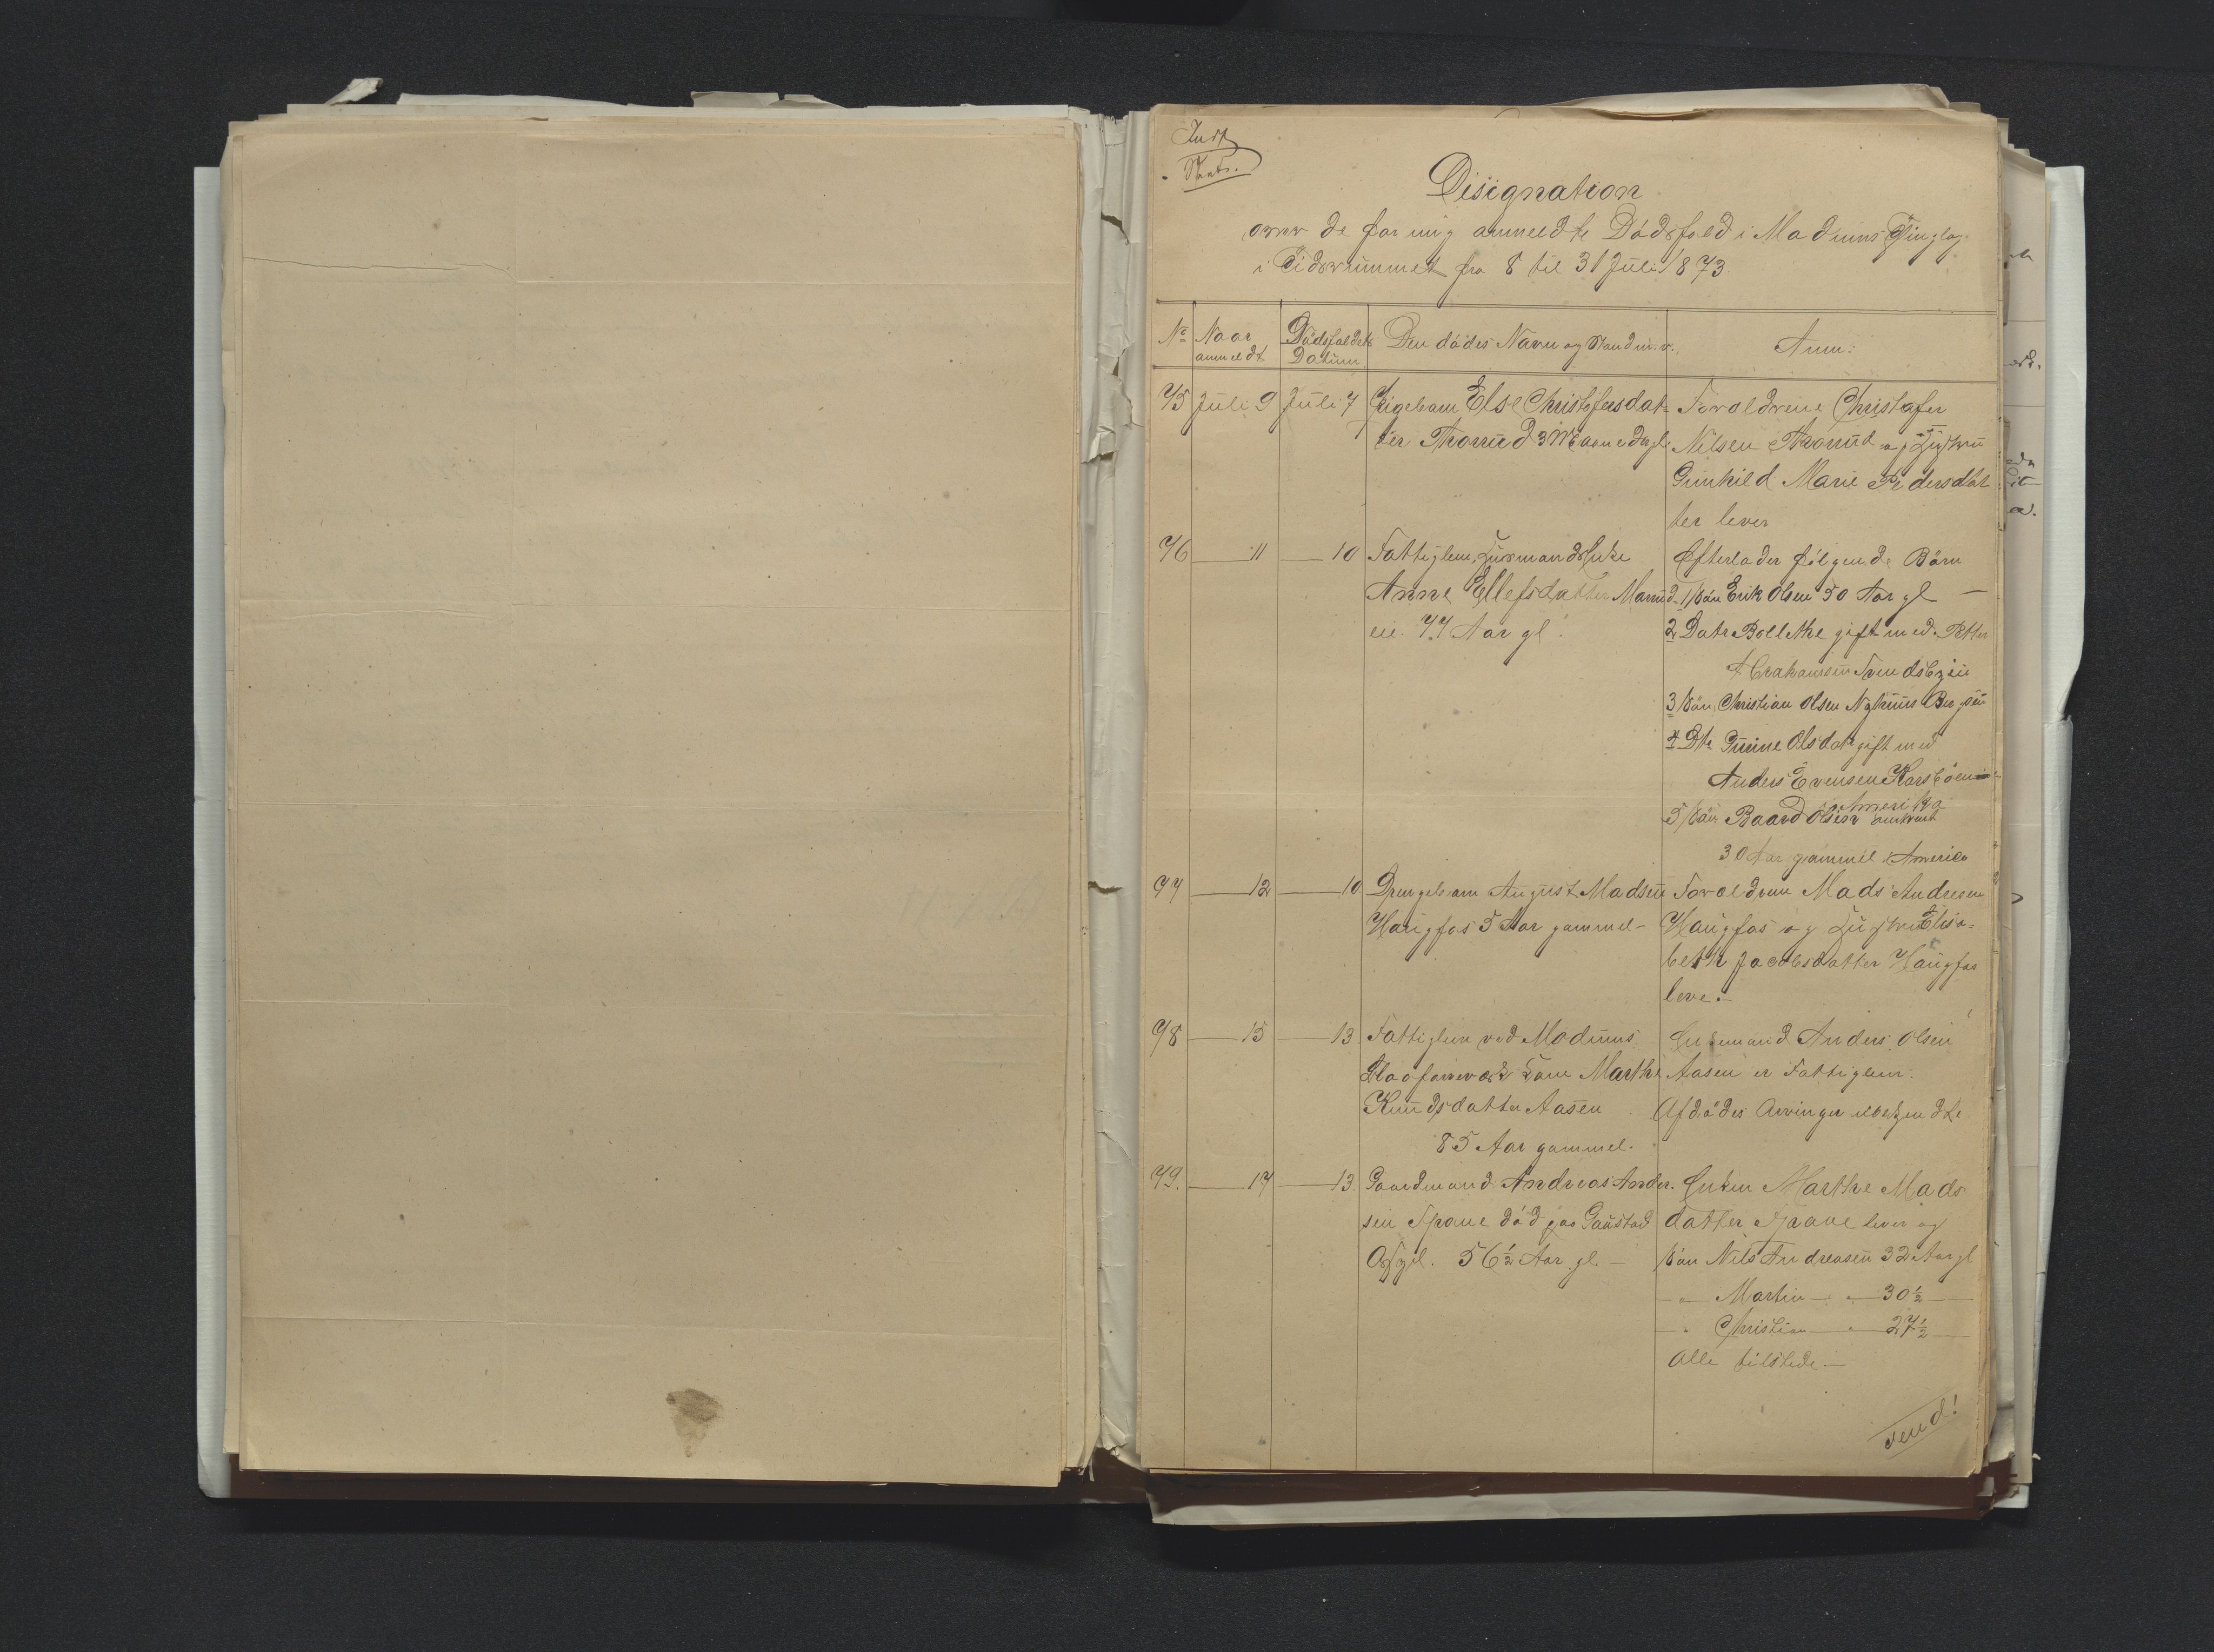 Designation
over de for mig anmeldte Dødsfald i Modums Tinglag
i Tidsrummet fra 8 til 31 Juli 1873.
No Naar anmeldt Dødsfaldets Datum Den dødes Navn og Stand m. v. Anm:
75 Juli 9 Juli 7 Pigebarn Else Christofersdat-
ter Thorrud 3 Maaneder gl.
Forældrene Christofer
Nilsen Thorrud og Hustru
Gunhild Marie Pedersdat
ter lever
76 — 11 — 10 Fattiglem, Huusmandsenke
Anne Ellefsdatter Morud
eie. 77 Aar gl.
Efterlader følgende Børn
1 Søn Erik Olsen 50 Aar gl —
2 Datr Bollethe gift med Petter
Abrahamsen
3 Søn Christian Olsen Nyhuus
4 Dtr Gurine Olsdatr gift med
Anders Evensen i
Amerika
5 Søn Baard Olsen omtrent
30 Aar gammel i Amerika
77 — 12 — 10 Drengebarn August Madsen
Haugfos 5 Aar gammel —
Forældrene Mads Andresen
Haugfos og Hustru Elisa-
beth Jacobsdatter Haugfos
leve. —
78 — 15 — 13. Fattiglem ved Modums
Blaafarveværk Kone Marthe
Knudsdatter Aasen
85 Aar gammel.
Enkemand Anders Olsen
Aasen er Fattiglem.
Afdødes Arvinger ubekjendte
79. — 17 — 13. Gaardmand Andreas Ander-
sen Skrane død paa Gaustad
56½ Aar gl. —
Enken Marthe Mads
datter Skrane lever og
Søn Nils Andreasen 32 Aar gl
— " — Martin — " — 30½ —
— " — Christian — " — 27½ —
Alle tilstede —
Vend!